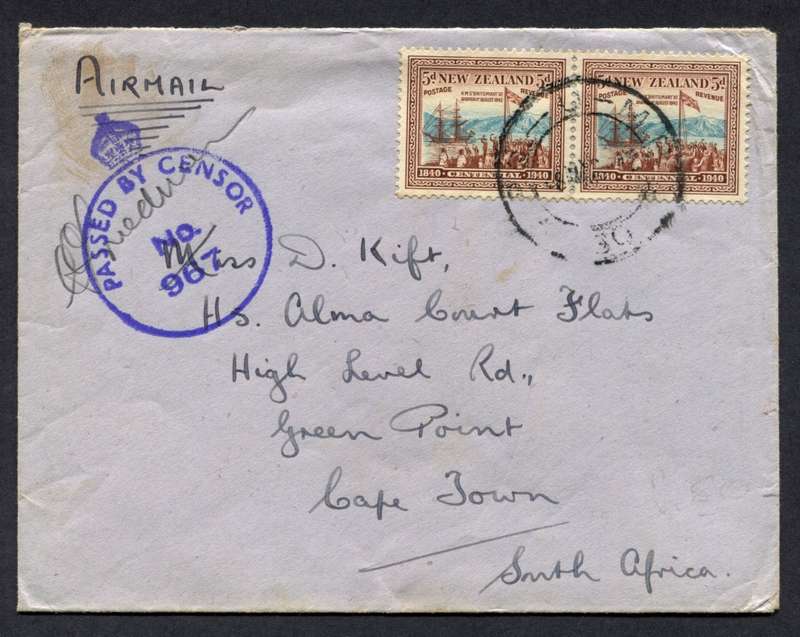 AIRMAIL
5d NEW ZEALAND 5d
POSTAGE REVENUE
1840 CENTENNIAL 1940
5d NEW ZEALAND 5d
POSTAGE REVENUE
1840 CENTENNIAL 1940
PASSED BY CENSOR
No.
967
Miss D. Kift,
Hs. Alma Court Flats
High Level Rd.,
Green Point
Cape Town
South Africa.